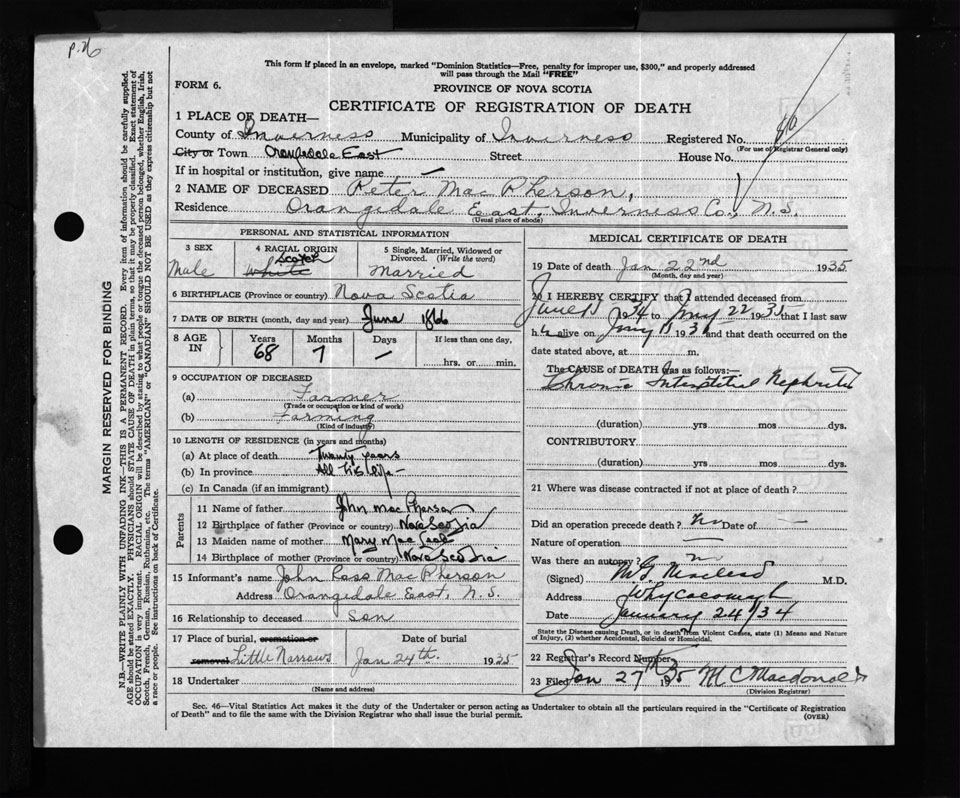 p. 26
This form if placed in an envelope, marked "Dominion Statistics—Free, penalty for improper use, $300," and properly addressed
will pass through the Mail "FREE"
FORM 6.
PROVINCE OF NOVA SCOTIA
CERTIFICATE OF REGISTRATION OF DEATH
1 PLACE OF DEATH—
County of Inverness Municipality of Inverness Registered No.
(For use of Registrar General only)
City or Town Orangedale East Street House No.
If in hospital or institution, give name —
2 NAME OF DECEASED Peter MacPherson,
Residence Orangedale East, Inverness Co., N.S.
(Usual place of abode)
PERSONAL AND STATISTICAL INFORMATION
3 SEX 4 RACIAL ORIGIN 5 Single, Married, Widowed or
Divorced. (Write the word)
Male Scotch White Married
6 BIRTHPLACE (Province or country) Nova Scotia
7 DATE OF BIRTH (month, day and year) June 1866
8 AGE IN Years Months Days If less than one day,
68 7 — hrs. or min.
9 OCCUPATION OF DECEASED
(a) Farmer
(Trade or occupation or kind of work)
(b) Farming
(Kind of industry)
10 LENGTH OF RESIDENCE (in years and months)
(a) At place of death Twenty years
(b) In province All his life —
(c) In Canada (if an immigrant)
Parents
11 Name of father John MacPherson
12 Birthplace of father (Province or country) Nova Scotia
13 Maiden name of mother Mary Mac
14 Birthplace of mother (Province or country) Nova Scotia
15 Informant's name John Ross MacPherson
Address Orangedale East, N.S.
16 Relationship to deceased Son
17 Place of burial, cremation or Date of burial
removal Little Narrows Jan 24th. 1935
18 Undertaker
(Name and address)
MEDICAL CERTIFICATE OF DEATH
19 Date of death Jan 22nd 1935
(Month, day and year)
20 I HEREBY CERTIFY that I attended deceased from
June 1934 to Jany 22 1935 that I last saw
h alive on Jany 193 and that death occurred on the
date stated above, at m.
The CAUSE OF DEATH was as follows:—
Chronic Interstitial Nephritis
(duration) yrs mos dys.
CONTRIBUTORY
(duration) yrs mos dys.
21 Where was disease contracted if not at place of death?
Did an operation precede death? No Date of —
Nature of operation —
Was there an autopsy? no
(Signed) Macleod M.D.
Address Whycocomagh
Date January 24/34
State the Disease causing Death, or in death from Violent Causes, state (1) Means and Nature
of Injury, (2) whether Accidental, Suicidal or Homicidal.
22 Registrar's Record Number
23 Filed Jan 27th 1935 M C Macdonald
(Division Registrar)
Sec. 46—Vital Statistics Act makes it the duty of the Undertaker or person acting as Undertaker to obtain all the particulars required in the "Certificate of Registration
of Death" and to file the same with the Division Registrar who shall issue the burial permit. (OVER)
MARGIN RESERVED FOR BINDING
N.B.—WRITE PLAINLY WITH UNFADING INK—THIS IS A PERMANENT RECORD. Every item of information should be carefully supplied.
AGE should be stated EXACTLY. PHYSICIANS should STATE CAUSE OF DEATH in plain terms, so that it may be properly classified. Exact statement of
OCCUPATION is very important. RACIAL ORIGIN will be described by stating to what people or tongue the deceased person belonged, whether English, Irish,
Scotch, French, German, Russian, Ruthenian, etc. The terms "AMERICAN" or "CANADIAN" SHOULD NOT BE USED as they express citizenship but not
a race or people. See instructions on back of Certificate.